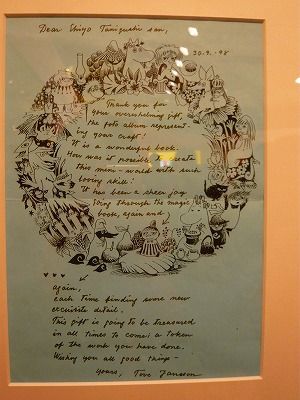 Dear Shigo Taniguchi san,
30.9.-98
Thank you for
your overwhelming gift,
the foto album represent-
ing your craft!
It is a wonderful book.
How was it possible to create
this mini-world with such
loving skill!
It has been a sheer joy
going through the magic
book, again and
again,
each time finding some new
exquisite detail.
This gift is going to be treasured
in all times to come: a token
of the work you have done.
Wishing you all good things -
yours, Tove Jansson